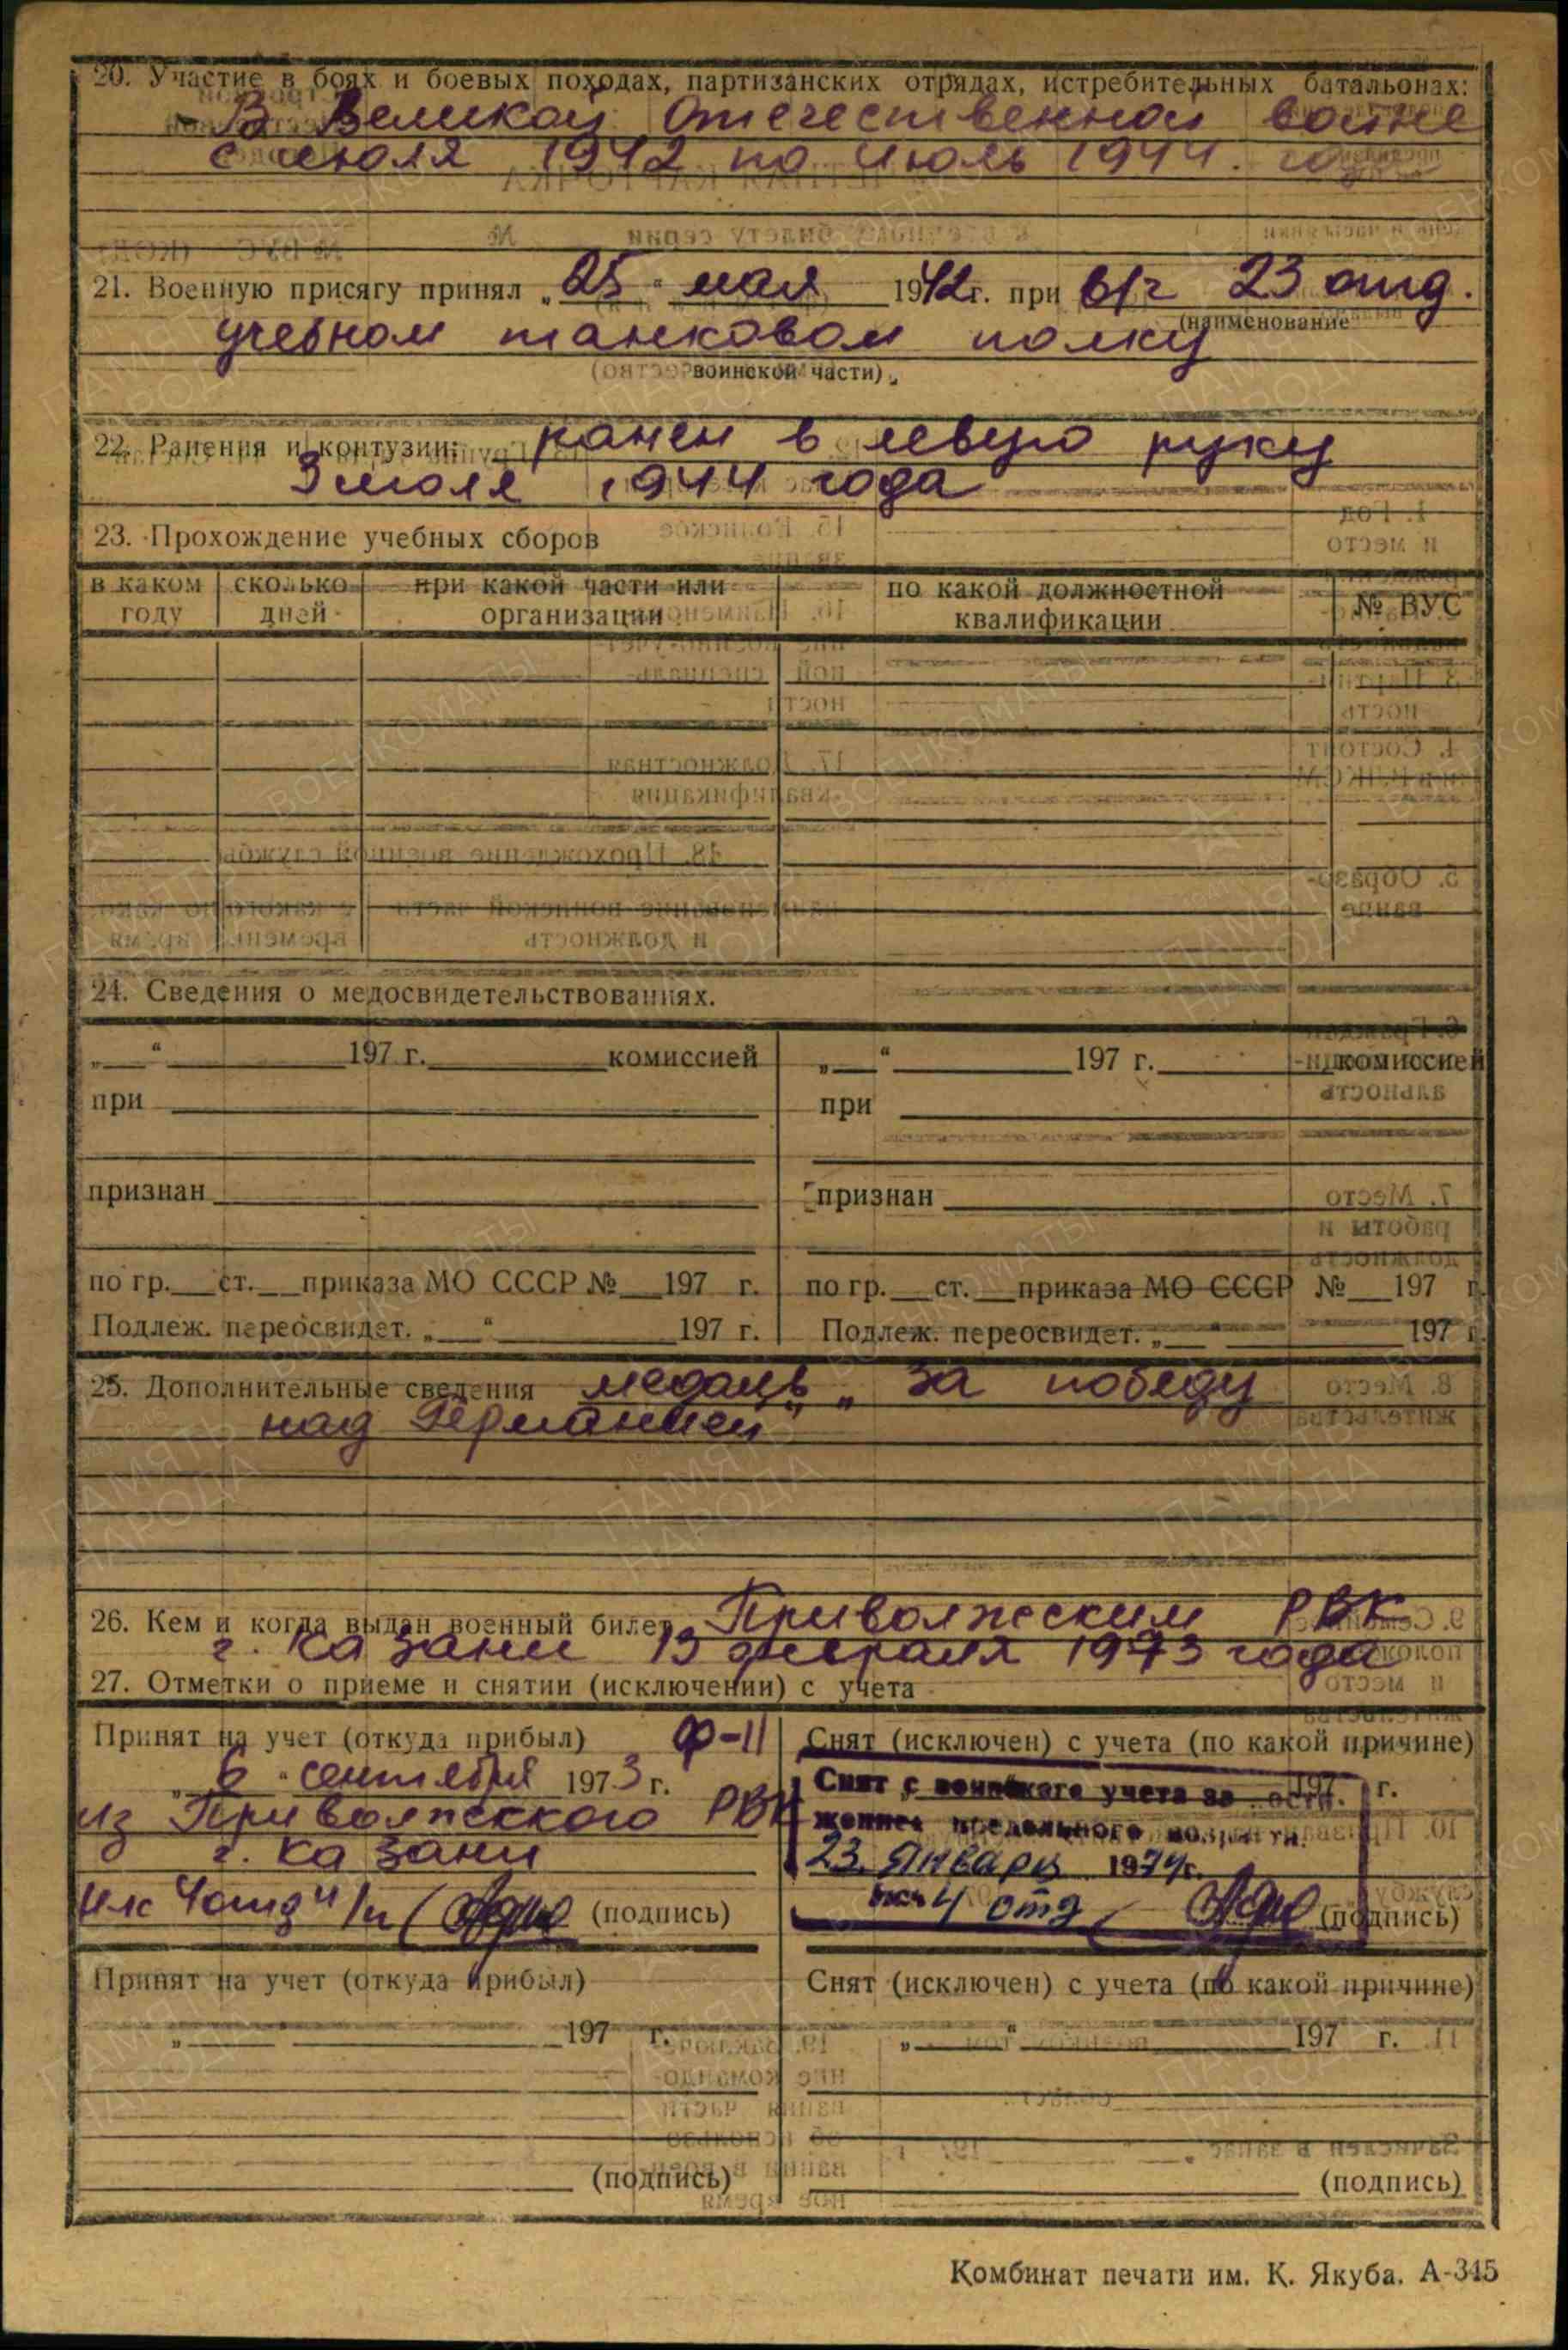 20. Участие в боях и боевых походах, партизанских отрядах, истребительных батальонах:
В Великой Отечественной войне
с июля 1942 по июль 1944. года
21. Военную присягу принял „25" мая 1942г. при в/г 23 отд.
(наименование
учебном танковом полку
воинской части)
22. Ранения и контузии: ранен в левую руку
3 июля 1944 года
23. Прохождение учебных сборов
в каком году сколько дней при какой части или организации по какой должностной квалификации № ВУС
24. Сведения о медосвидетельствованиях.
„ “ 197 г. комиссией „ “ 197 г. комиссией
при при
признан признан
по гр. ст. приказа МО СССР № 197 г. по гр. ст. приказа МО СССР № 197 г.
Подлеж. переосвидет. „ “ 197 г. Подлеж. переосвидет. „ “ 197 г.
25. Дополнительные сведения медаль „За победу
над Германией"
26. Кем и когда выдан военный билет Приволжским РВК
г. Казани 13 февраля 1973 года
27. Отметки о приеме и снятии (исключении) с учета
Принят на учет (откуда прибыл) Ф-11 Снят (исключен) с учета (по какой причине)
„6" сентября 1973 г. 197 г.
Снят с воинского учета за
предельного возраста.
из Приволжского РВК
г. Казани 23 января 1974г.
(подпись) 4 отд (подпись)
Принят на учет (откуда прибыл) Снят (исключен) с учета (по какой причине)
„ 197 г. „ “ 197 г.
(подпись) (подпись)
Комбинат печати им. К. Якуба. А-345
ПАМЯТЬ НАРОДА
ВОЕНКОМАТЫ